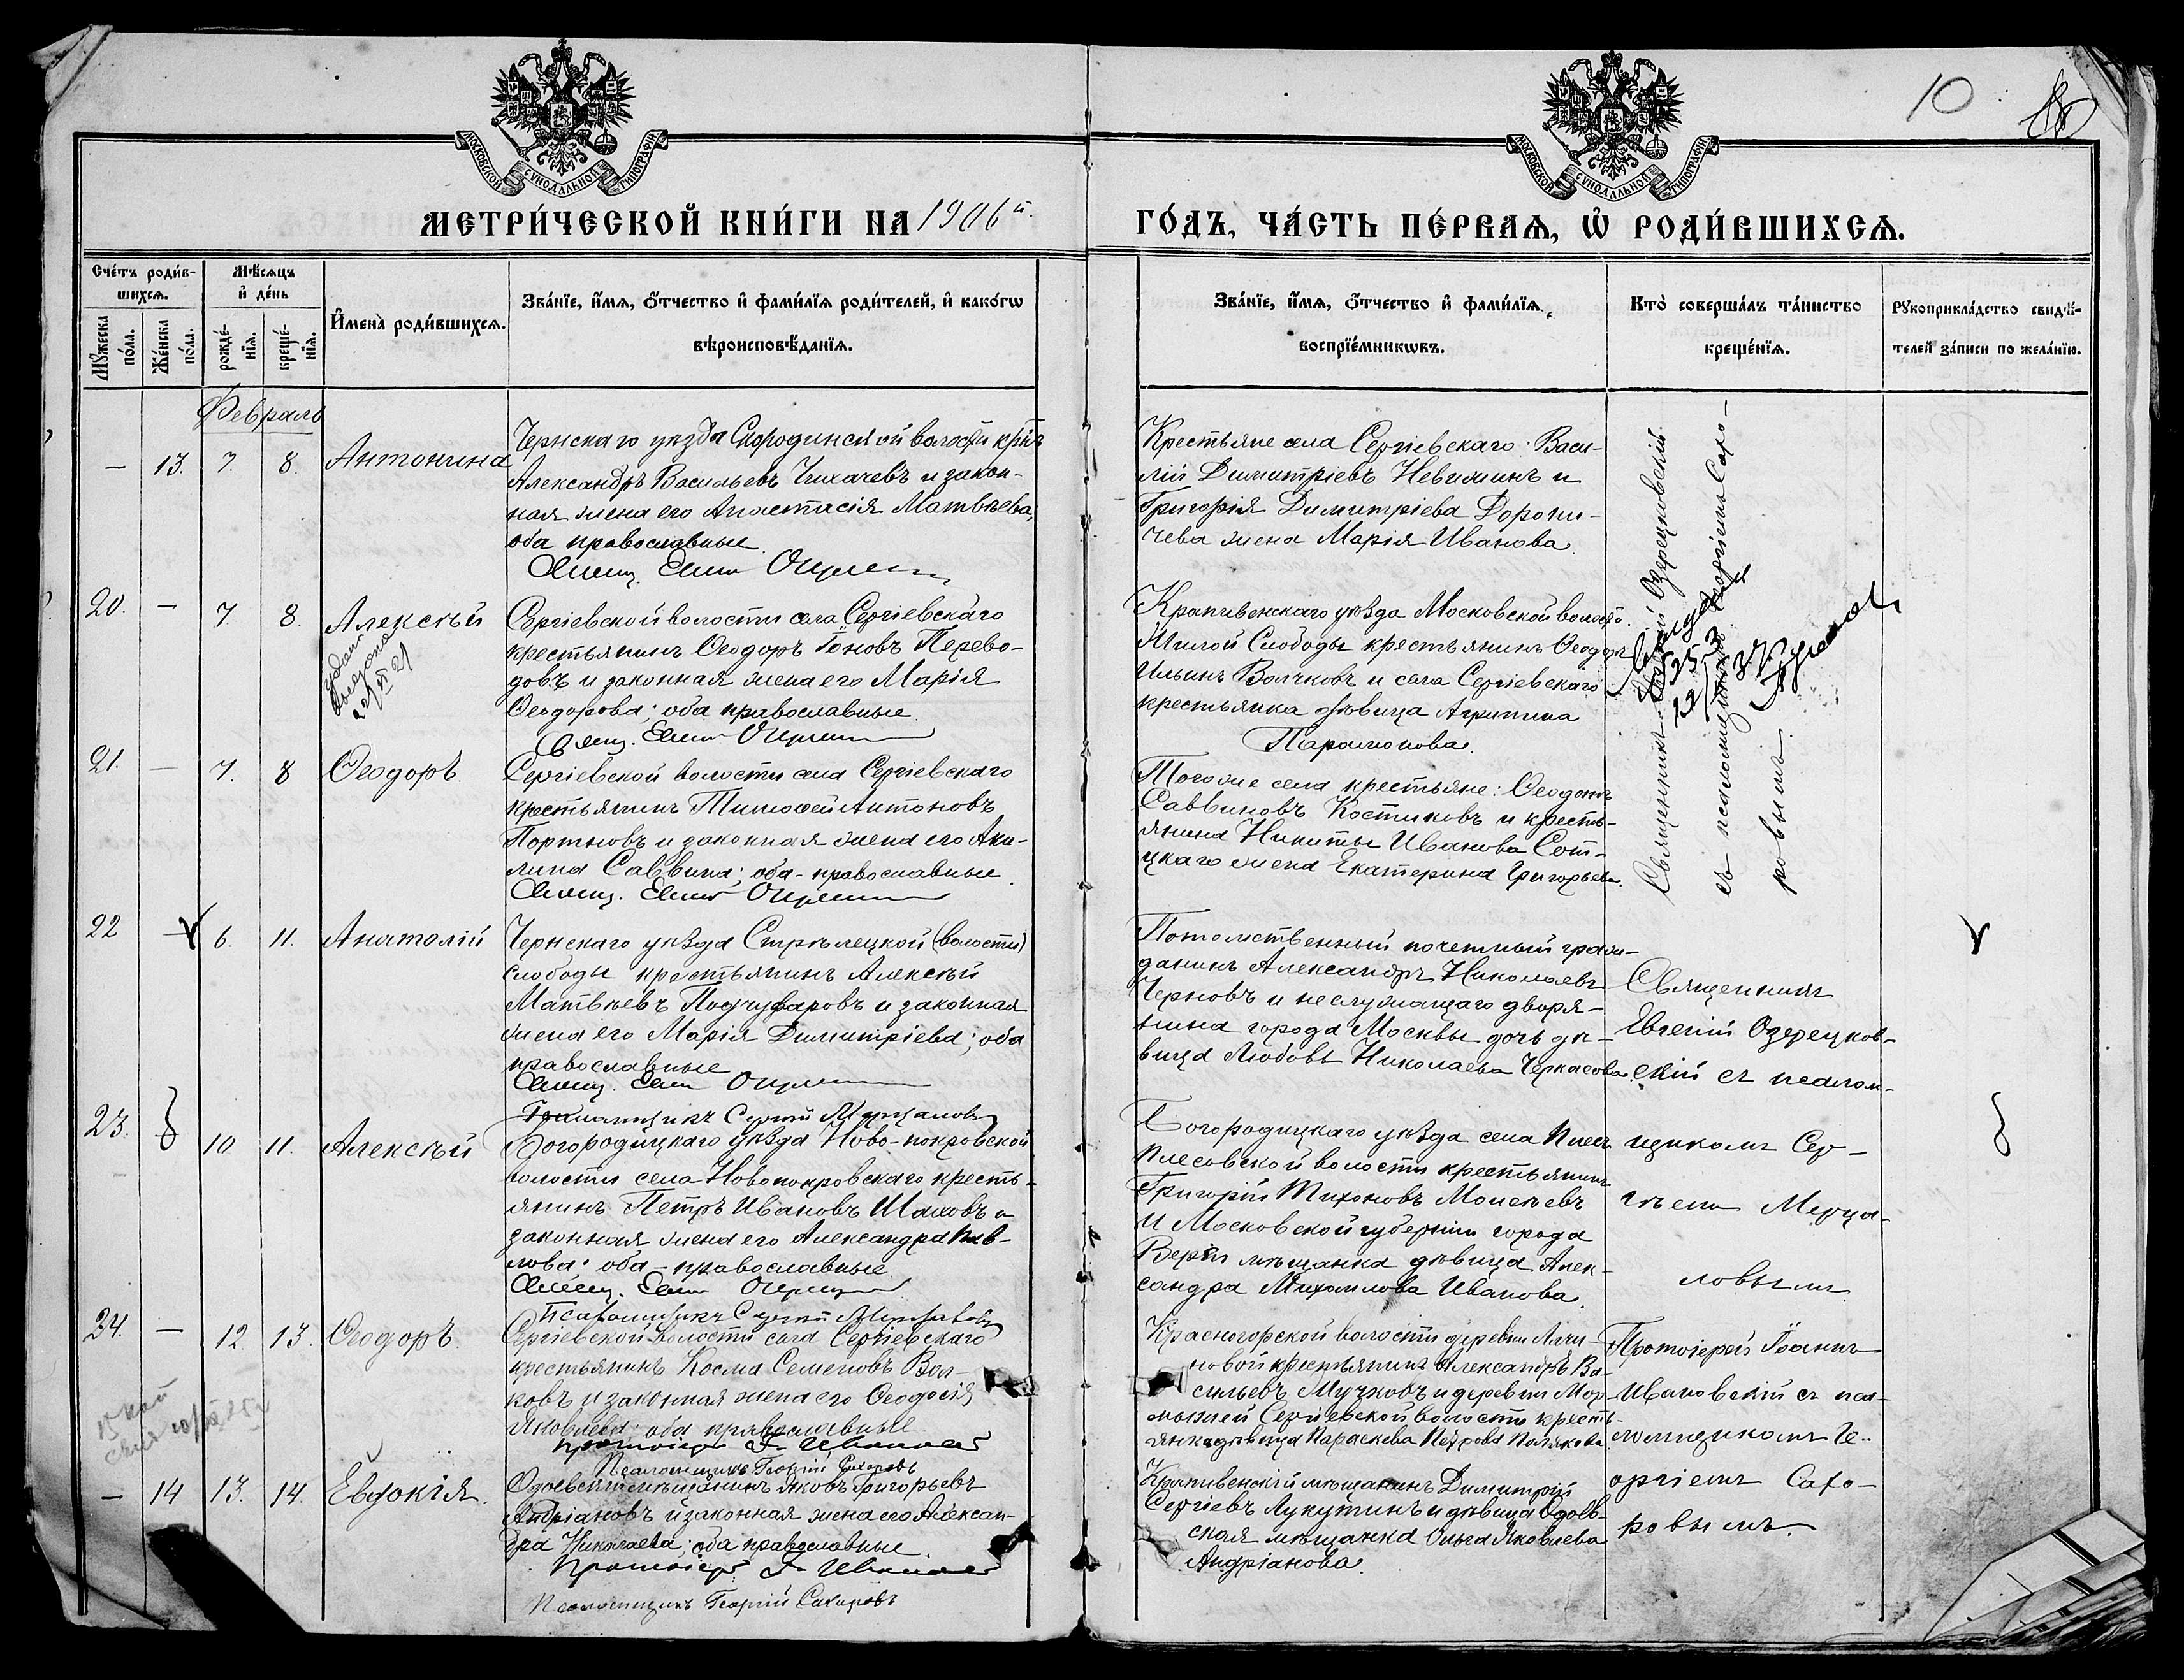 10
МОСКОВСКОЙ СѴНОДАЛЬНОЙ ТИПОГРАФІИ
МОСКОВСКОЙ СѴНОДАЛЬНОЙ ТИПОГРАФІИ
МЕТРИ́ЧЕСКОЙ КНИ́ГИ НА 1906 й.
ГО́ДЪ, ЧА́СТЬ ПЕ́РВАѦ, Ѡ҆ РОДИ́ВШИХСѦ.
Сче́тъ роди́в-
шихсѧ.
Мꙋжеска по́ла.
Же́нска по́ла.
Мѣ́сѧцъ
и҆ де́нь
рожде́-
нїѧ.
креще́-
нїѧ.
И҆мена̀ роди́вшихсѧ.
Зва́нїе, и҆́мѧ, ѻ҆́тчество и҆ фами́лїѧ роди́телей, и҆ како́гѡ
вѣроисповѣ́данїѧ.
Зва́нїе, и҆́мѧ, ѻ҆́тчество и҆ фами́лїѧ
воспрїе́мникѡвъ.
Кто̀ соверша́лъ та́инство
креще́нїѧ.
Рꙋкоприкла́дство свидѣ́-
телей за́писи по жела́нїю.
Февраль
— 13. 7. 8. Антонина
Чернскаго уѣзда Скородинской волости крнъ
Александръ Васильевъ Чихачевъ и закон-
ная жена его Анастасія Матвѣева,
оба православные.
Крестьяне села Сергіевскаго: Васи-
лій Димитріевъ Невижинъ и
Григорія Димитріева Дорони-
чева жена Марія Иванова.
Священникъ Евгеній Озерецковскій
съ псаломщикомъ Георгіемъ Сахо-
ровымъ.
20. — 7. 8. Алексѣй
Сергіевской волости села Сергіевскаго
крестьянинъ Ѳеодоръ Іоновъ Перево-
довъ и законная жена его Марія
Ѳеодорова; оба православные.
Крапивенскаго уѣзда Московской волости.
Жилой Слободы крестьянинъ Ѳеодоръ
Ильинъ Волчковъ и села Сергіевскаго
крестьянка дѣвица Агрипина
Парамонова.
21. — 7. 8 Ѳеодоръ.
Сергіевской волости села Сергіевскаго
крестьянинъ Тимоѳей Антоновъ
Портновъ и законная жена его Аки-
лина Саввина; оба - православные.
Того же села крестьяне: Ѳеодотъ
Саввиновъ Костиковъ и кресть-
янина Никиты Иванова Сот-
цкаго жена Екатерина Григорьева.
22 — 6. 11. Анатолій
Чернскаго уѣзда Стрѣлецкой (волости)
слободы крестьянинъ Алексѣй
Матвѣевъ Подчуфаровъ и законная
жена его Марія Димитріева; оба
православные
Потомственный почетный граж-
данинъ Александръ Николаевъ
Черновъ и неслужащаго дворя-
нина города Москвы дочь дѣ-
вица Любовь Николаева Черкасова.
Священникъ
Евгеній Озерецков-
скій съ псалом-
щикомъ Сер-
гѣемъ Мерца-
ловымъ.
23. 10 11. Алексѣй
Богородицкаго уѣзда Ново-покровской
волости села Новопокровскаго кресть-
янинъ Петръ Ивановъ Шаховъ и
законная жена его Александра Пав-
лова; оба - православные.
Богородицкаго уѣзда села
Плесовской волости крестьянинъ
Григорій Тихоновъ Моисеевъ
и Московской губерніи города
Вереи мѣщанка дѣвица Алек-
сандра Михаилова Иванова.
24. — 12. 13. Ѳеодоръ.
Сергіевской волости села Сергіевскаго
крестьянинъ Косма Семеновъ Вол-
ковъ и законная жена его Ѳеодосія
Яковлева; оба православные
протоіерей І. Ивановскій
Псаломщикъ Георгій Сахаровъ
Красногорской волости деревни
новой крестьянинъ Александръ Ва-
сильевъ Мучковъ и деревни
Сергіевской волости кресть-
янка дѣвица Параскева Петрова
Протоіерей Іоаннъ
Ивановскій съ пса-
ломщикомъ Ге-
оргіемъ Сахо-
ровымъ.
— 14 13. 14. Евдокія.
Одоевскій мѣщанинъ Яковъ Григорьевъ
Андріановъ и законная жена его Алексан-
дра Николаева; оба православные.
Протоіерей І. Ивановскій
Псаломщикъ Георгій Сахаровъ
Крапивенскій мѣщанинъ Димитрій
Сергіевъ Лукутинъ и дѣвица Одоев-
ская мѣщанка Ольга Яковлева
Андріанова.